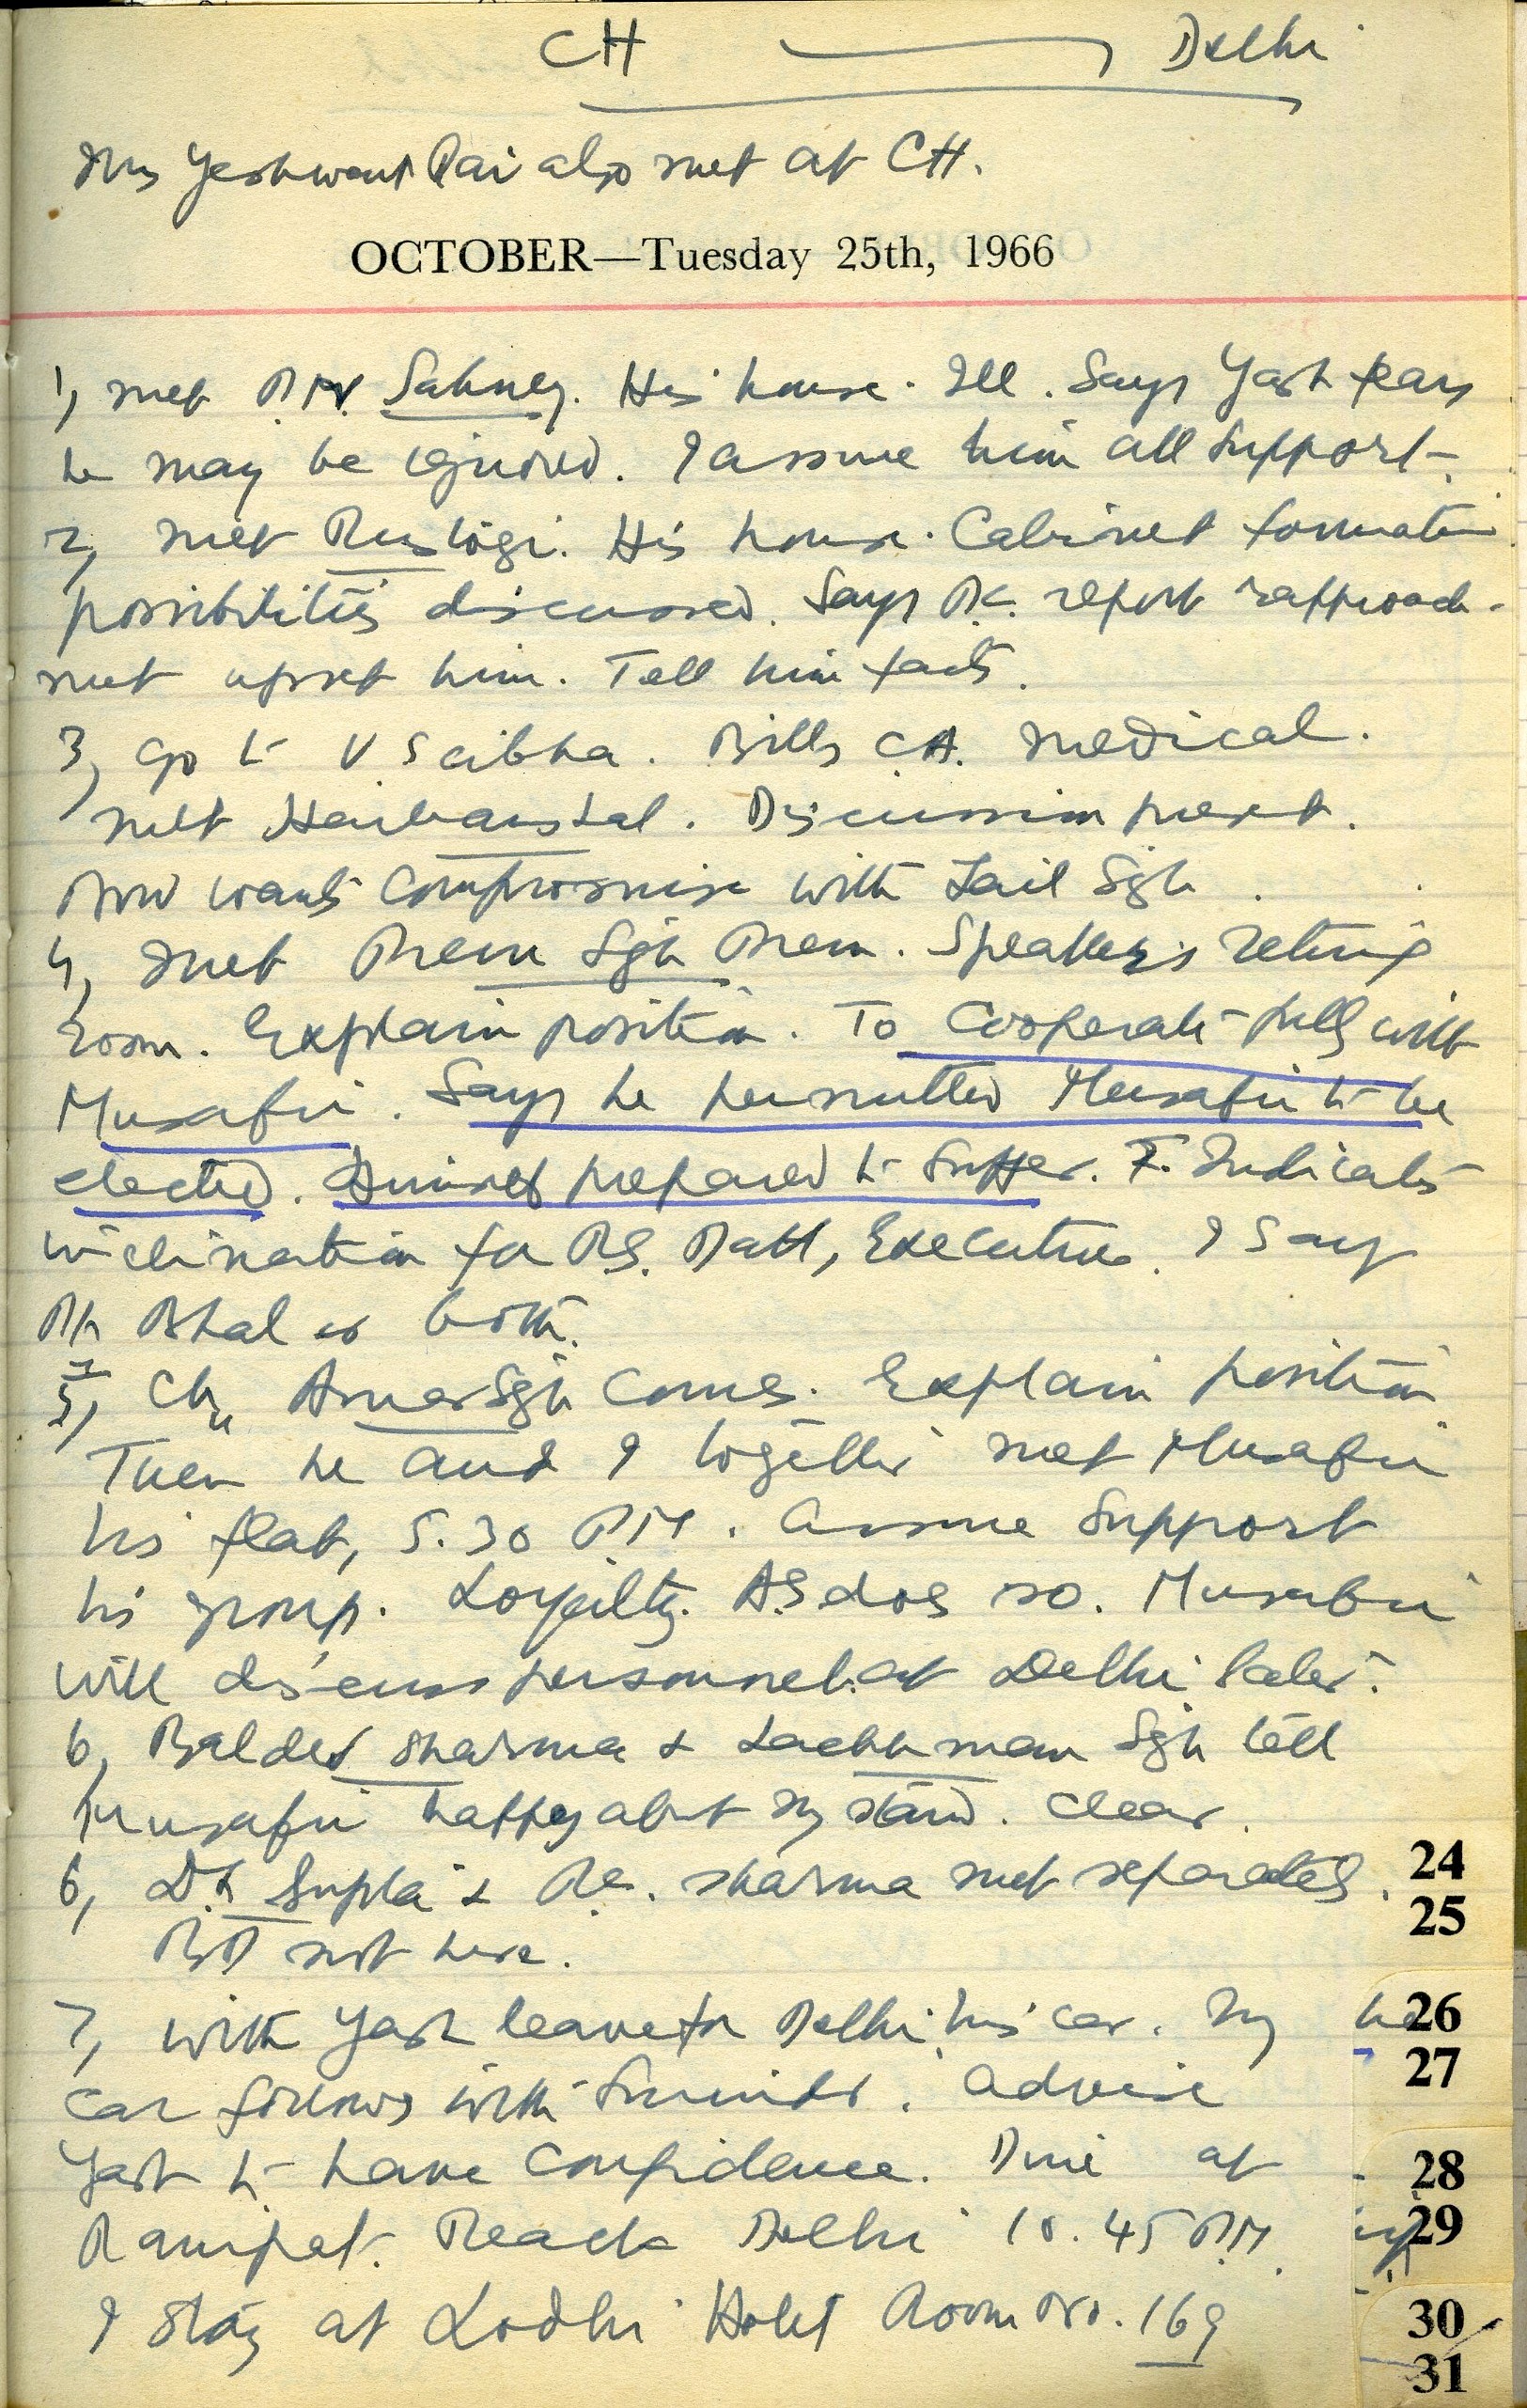 CH — Delhi
Mrs Yeshwant Rai also met at CH.
OCTOBER—Tuesday 25th, 1966
1, Met Sahney. His house. Ill. Says Yash fears
he may be ignored. I assure him all support.
2, Met Rustogi. His house. Cabinet formation
possibilities discussed. Says report rapproach-
ment upset him. Tell him facts.
3, Go to V Sabha. Bills C.A. Medical.
Met Harbans Lal. Discussion
Now wants compromise with Zail Sgh.
4, Met Prem Sgh Prem. Speaker's retiring
room. Explain position. To cooperate fully with
Musafir. Says he permitted Musafir to be
elected. Himself prepared to suffer. Indicates
inclination for Datt, Executive. I say
is both.
5, Ch. Amar Sgh comes. Explain position
Then he and I together met Musafir
his flat, 5.30 PM. Assure support
his group. Loyalty. AS does so. Musafir
will discuss personnel at Delhi later.
6, Baldev Sharma & Lachhman Sgh tell
Musafir happy about my stand. Clear.
6, Gupta & Sharma met separately.
not here.
7, With Yash leave for Delhi, his car. My
car follows with Surinder. Advise
Yash to have confidence. Dine at
Panipat. Reach Delhi 10.45 P.M.
I stay at Lodhi Hotel Room No. 169
24
25
26
27
28
29
30
31